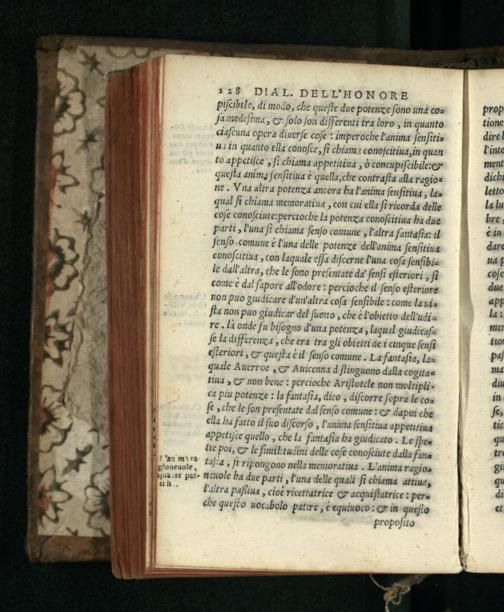 128 DIAL. DELL'HONORE
piscibile, di modo, che queste due potenze sono una co=
sa medesima, & solo son differenti tra loro, in quanto
ciascuna opera diuerse cose: imperoche l'anima sensiti=
ua in quanto ella conosce, si chiama conoscitiua, in quan
to appetisce, si chiama appetitiua, ò concupiscibile: &
questa anima sensitiua è quella, che contrasta alla ragio=
ne. Vna altra potenza ancora ha l'anima sensitiua, la=
qual si chiama memoratiua, con cui ella si ricorda delle
cose conosciute: percioche la potenza conoscitiua ha due
parti, l'una si chiama senso comune, l'altra fantasia: il
senso comune è l'una delle potenze dell'anima sensitiua
conoscitiua, con laquale essa discerne l'una cosa sensibi=
le dall'altra, che le sono presentate da' sensi esteriori, si
come è dal sapore all'odore: percioche il senso esteriore
non può giudicare d'un'altra cosa sensibile: come la ui=
sta non può giudicar del suono, che è l'obietto dell'udi=
re. là onde fu bisogno d'una potenza, laqual giudicas=
se la differenza, che era tra gli obietti de i cinque sensi
esteriori, & questa è il senso comune. La fantasia, la=
quale Auerroe, & Auicenna distinguono dalla cogita=
tiua, & non bene: percioche Aristotele non moltipli=
ca piu potenze: la fantasia, dico, discorre sopra le co=
se, che le son presentate dal senso comune: & dapoi che
ella ha fatto il suo discorso, l'anima sensitiua appetitiua
appetisce quello, che la fantasia ha giudicato. Le spe=
tie poi, & le similitudini delle cose conosciute dalla fan=
tasia, si ripongono nella memoratiua. L'anima ragio=
neuole ha due parti, l'una delle quali si chiama attiua,
l'altra passiua, cioè ricettatrice & acquistatrice: per=
che questo uocabolo patire, è equiuoco: & in questo
proposito
L'anima ra
gioneuole,